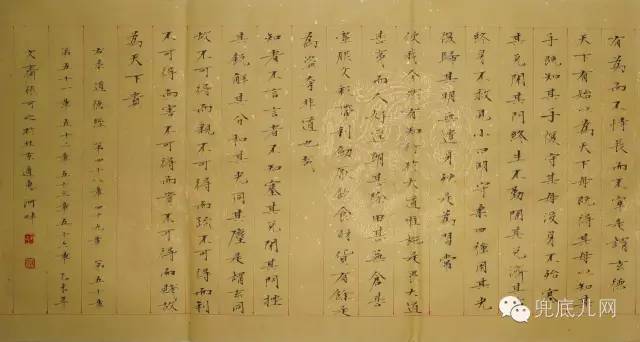 有為而不恃長而不宰是謂玄德
天下有始以為天下母既得其母以知其
子既知其子復守其母沒身不殆塞
其兌閉其門終身不勤開其兌濟其
終身不救見小曰明守柔曰強用其光
復歸其明無遺身殃是為習常
使我介然有知行於大道唯施是畏大道
甚夷而人好徑朝甚除田甚蕪倉甚
虛服文綵帶利劍厭飲食財貨有餘是
為盜夸非道也哉
知者不言言者不知塞其兌閉其門挫
其銳解其分和其光同其塵是謂玄同
故不可得而親不可得而疏不可得而利
不可得而害不可得而貴不可得而賤故
為天下貴
右录 道德經 第四十八章 四十九章 第五十章
第五十一章五十二章五十三章五十六章 乙未年
文齋張可之於北京通惠河畔
兜底儿网